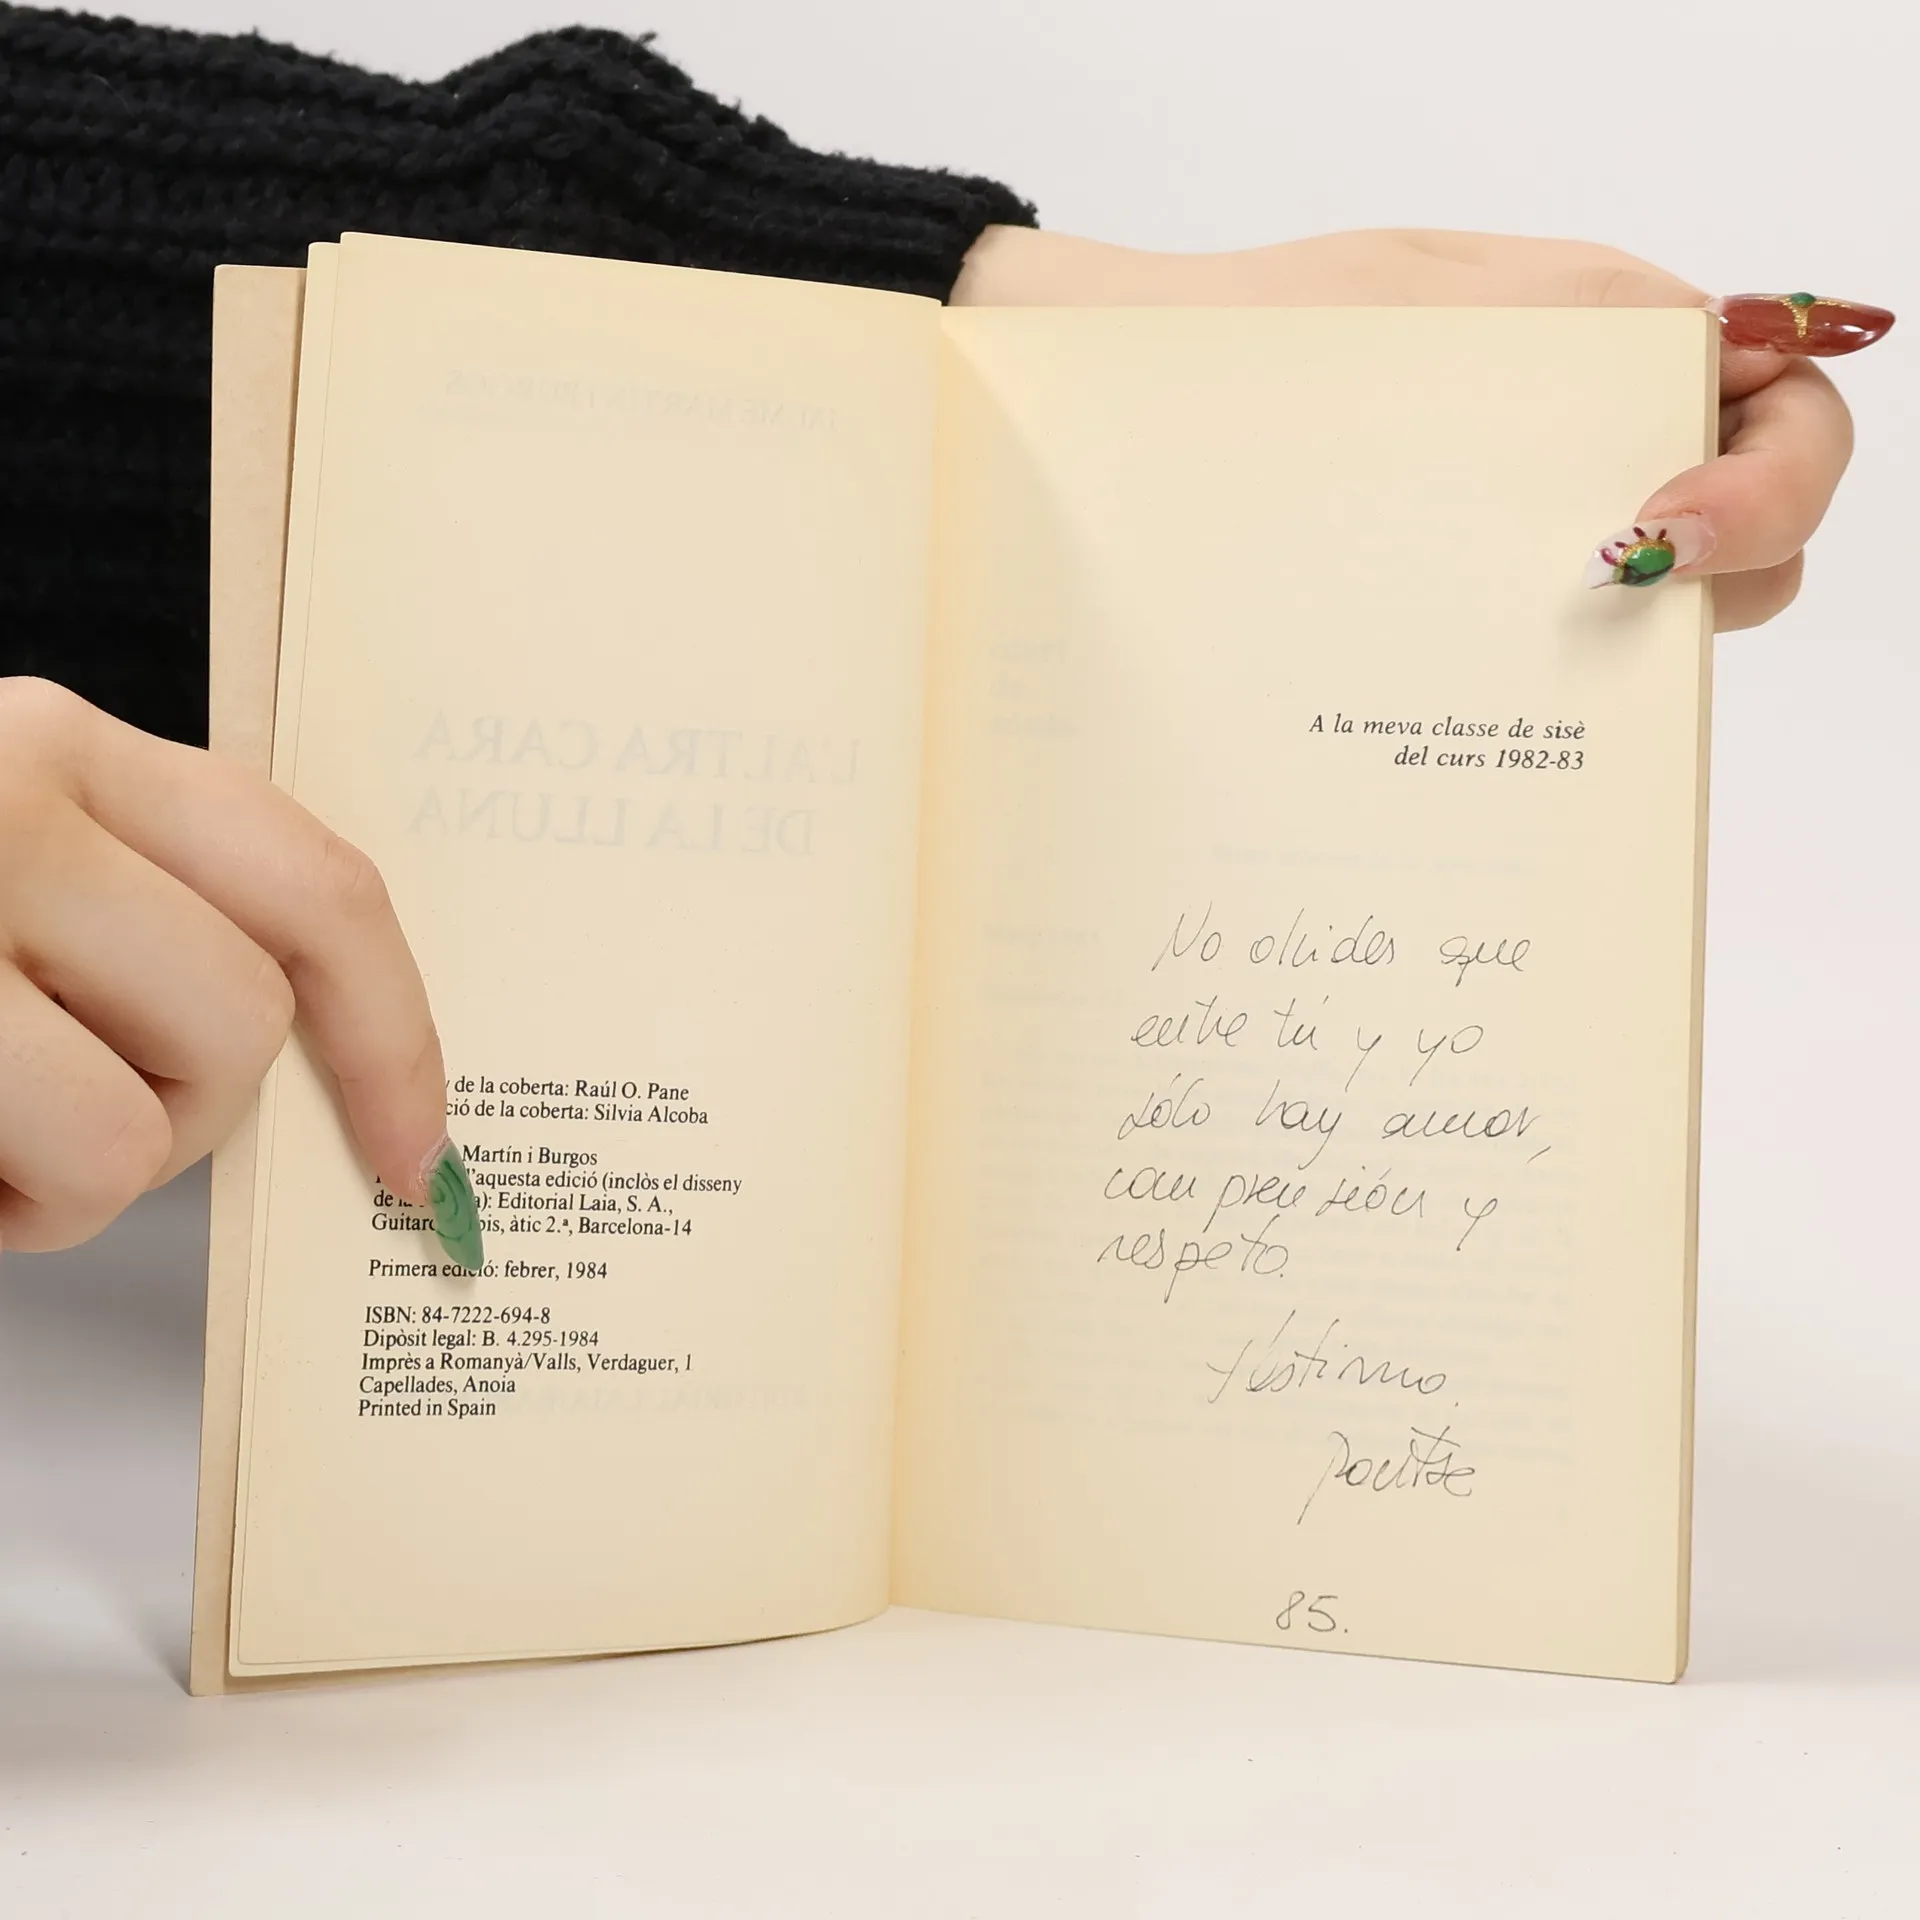 y de la coberta: Raúl O. Pane
ció de la coberta: Silvia Alcoba
Martín i Burgos
d'aquesta edició (inclòs el disseny
de la a): Editorial Laia, S. A.,
bis, àtic 2.ª, Barcelona-14
Primera edició: febrer, 1984
ISBN: 84-7222-694-8
Dipòsit legal: B. 4.295-1984
Imprès a Romanyà/Valls, Verdaguer, 1
Capellades, Anoia
Printed in Spain
L'ALTRA CARA
DE LA LLUNA
A la meva classe de sisè
del curs 1982-83
No olvides que
entre tú y yo
sólo hay amor,
conprensión y
respeto.
t'estimo.
85.